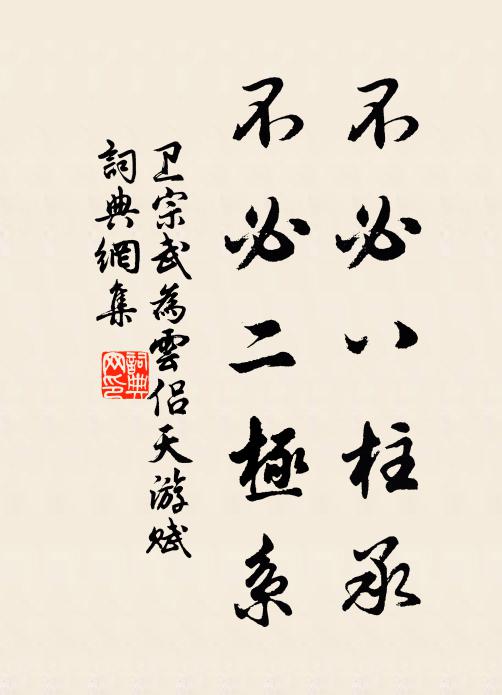 不必八柱承
不必二極系
卫宗武為雲侣天游赋
詞典網集
詞典网印